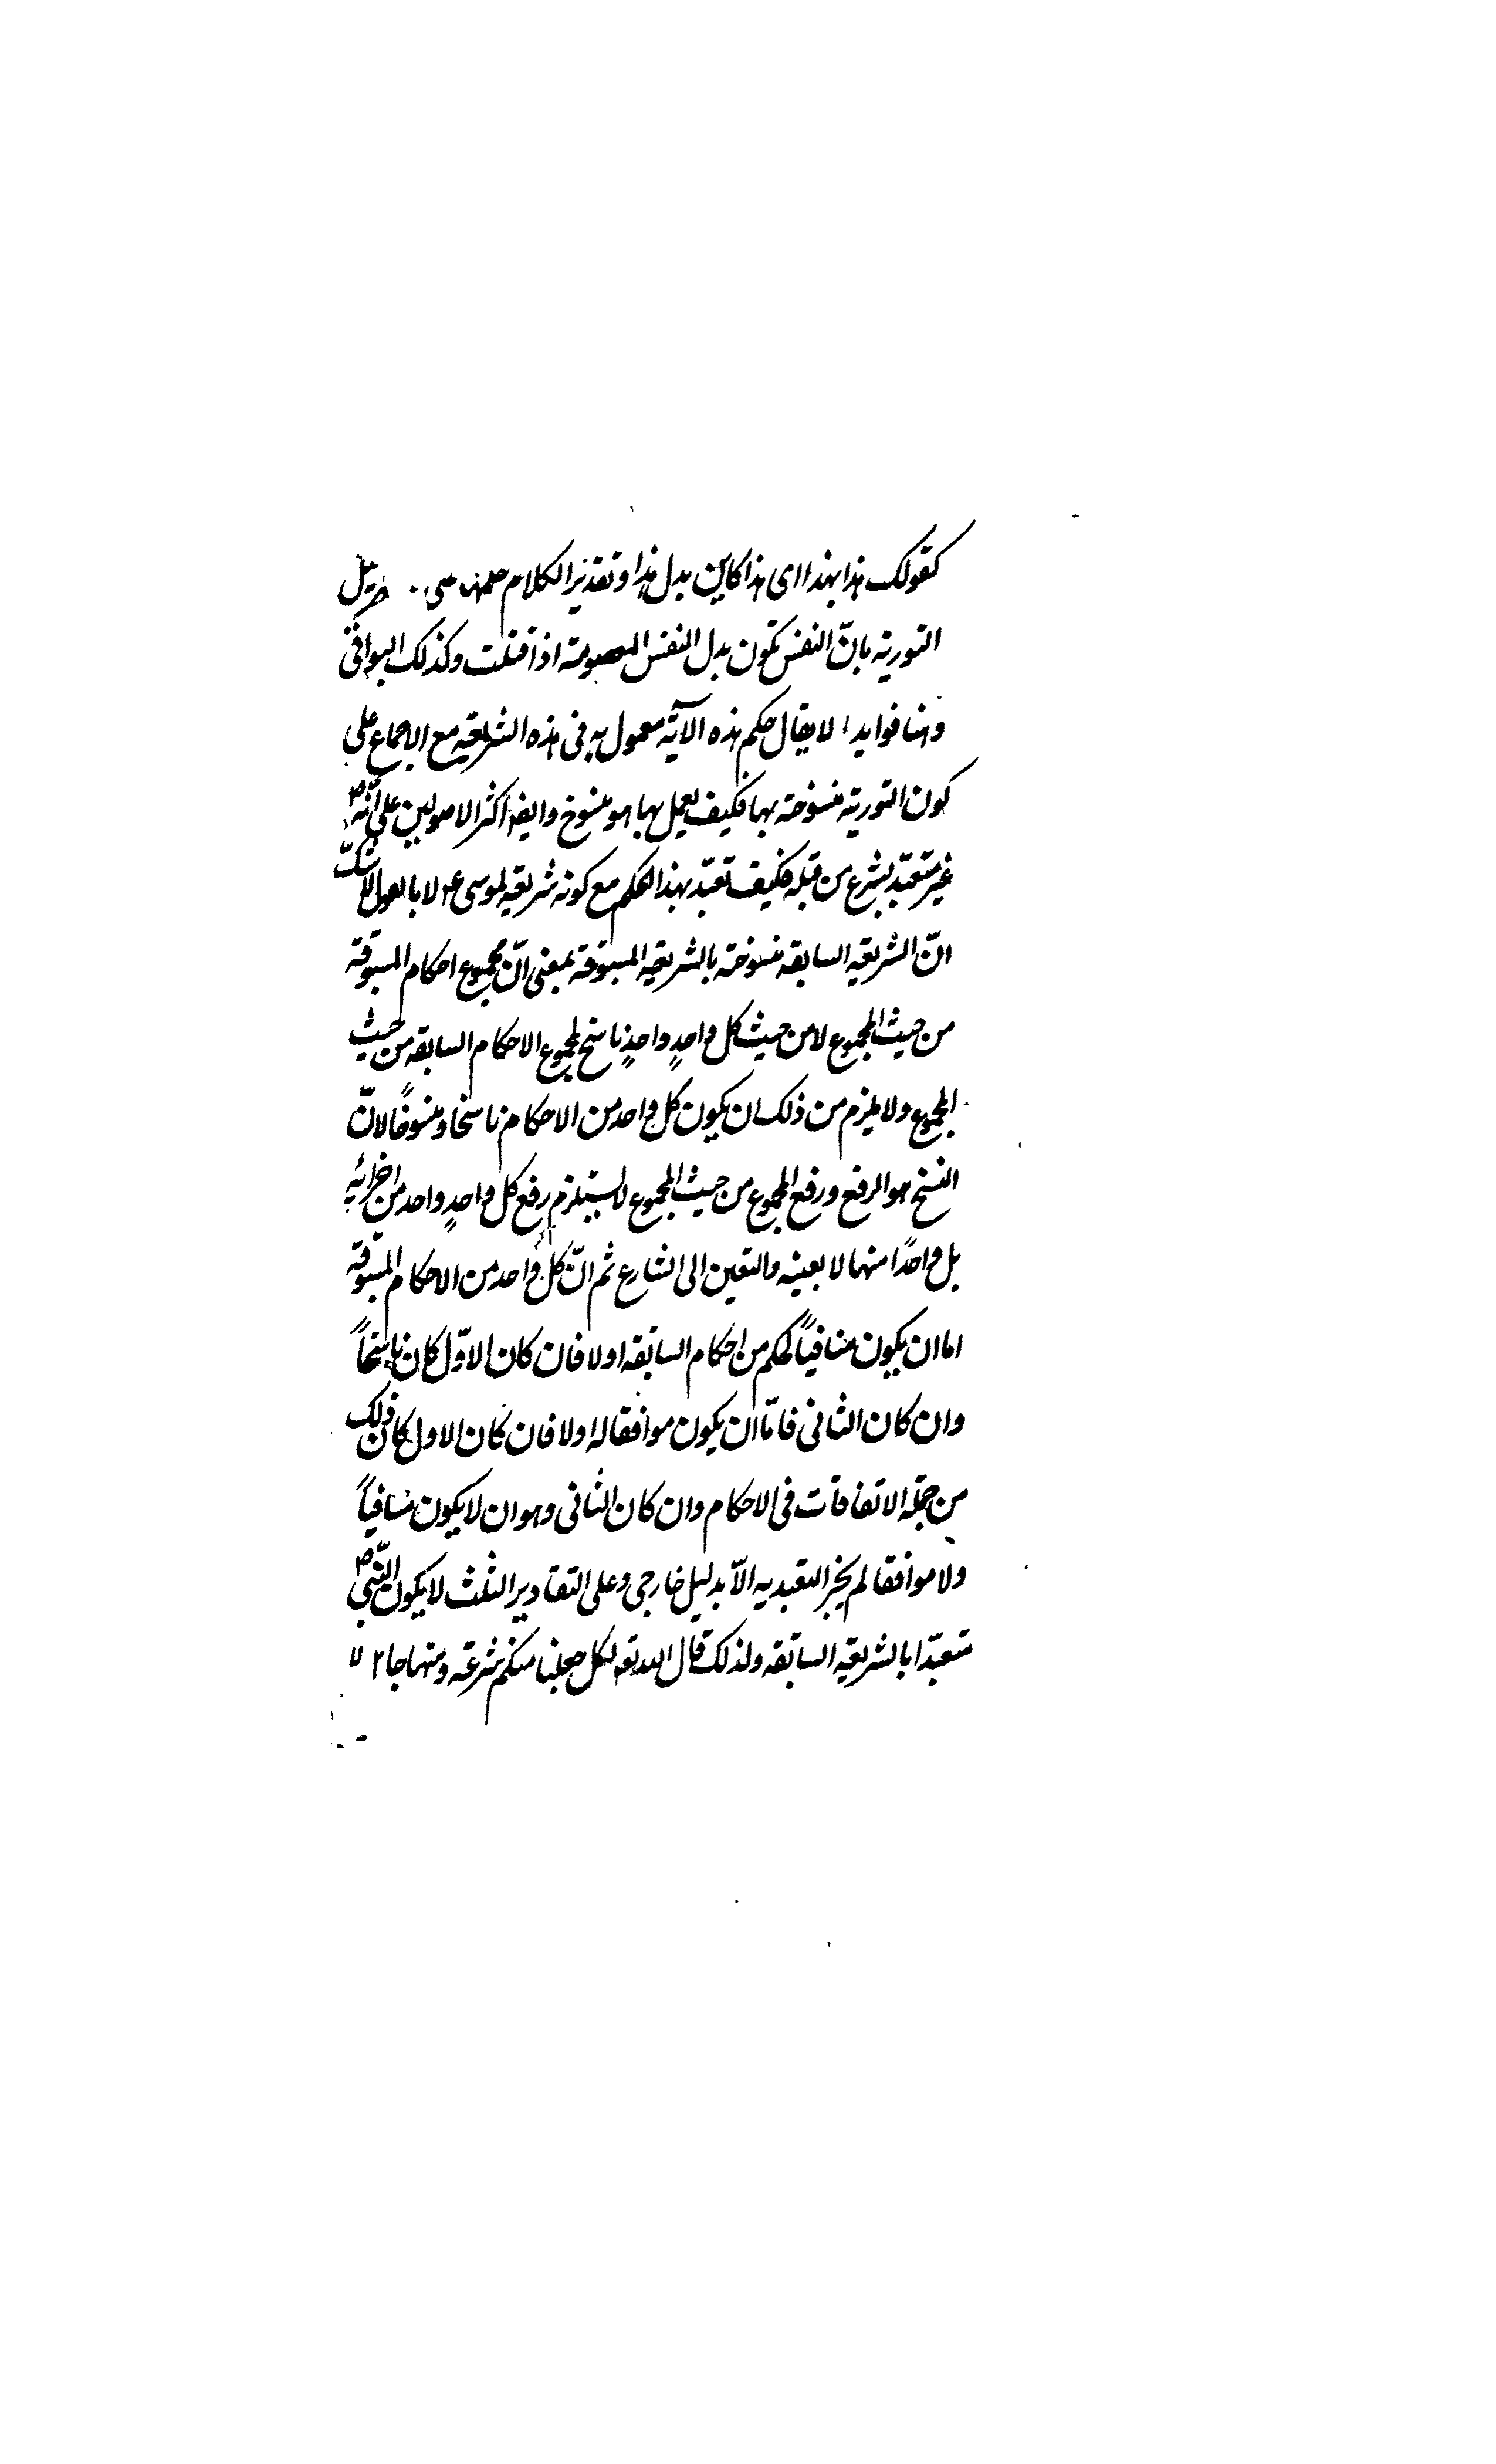 كقولك هذا بهذا اى هذا كاين بدل هذا و تقدير الكلام حكمنا على
التورية بانّ النفس تكون بدل النفس المعصومة اذا قتلت وكذلك البواقى
وهنا فوايد ا لا يقال حكم هذه الآية معمول به فى هذه الشريعة مع الاجماع على
كون التورية منسوخة بها فكيف يعمل بها هو منسوخ وايضا اكثر الاصوليين على انّه ص
غير متعبّد بشرع من قبله فكيف تعبّد بهذا الحكم مع كونه شريعة لموسى ع لانا نقول لا شكّ
انّ الشريعة السابقة منسوخة بالشريعة المسبوقة بمعنى انّ مجموع احكام المسبوقة
من حيث المجموع لا من حيث كل واحدٍ واحدٍ ناسخ لمجموع الاحكام السابقة من حيث
المجموع ولا يلزم من ذلك ان يكون كل واحد من الاحكام ناسخا و منسوخاً لانّ
النسخ هو الرفع ورفع المجموع من حيث المجموع لا يستلزم رفع كل واحدٍ واحد من اجزائه
بل واحدًا منها لا بعينه والتعين الى الشارع ثم انّ كل واحد من الاحكام المسبوقة
اما ان يكون منافياً لحكم من احكام السابقة اولا فان كان الاوّل كان ناسخاً
وان كان الثانى فامّا ان يكون موافقا له اولا فان كان الاول كان ذلك
من جملة الاتفاقات فى الاحكام وان كان الثانى وهو ان لا يكون منافياً
ولا موافقا لم يجز التعبد به الاّ بدليل خارجى وعلى التقادير الثلث لا يكون النّبى ص
متعبّدا بالشريعة السابقة ولذلك قال الله تعه لكل جعلنا منكم شرعة و منهاجا ٢ لا